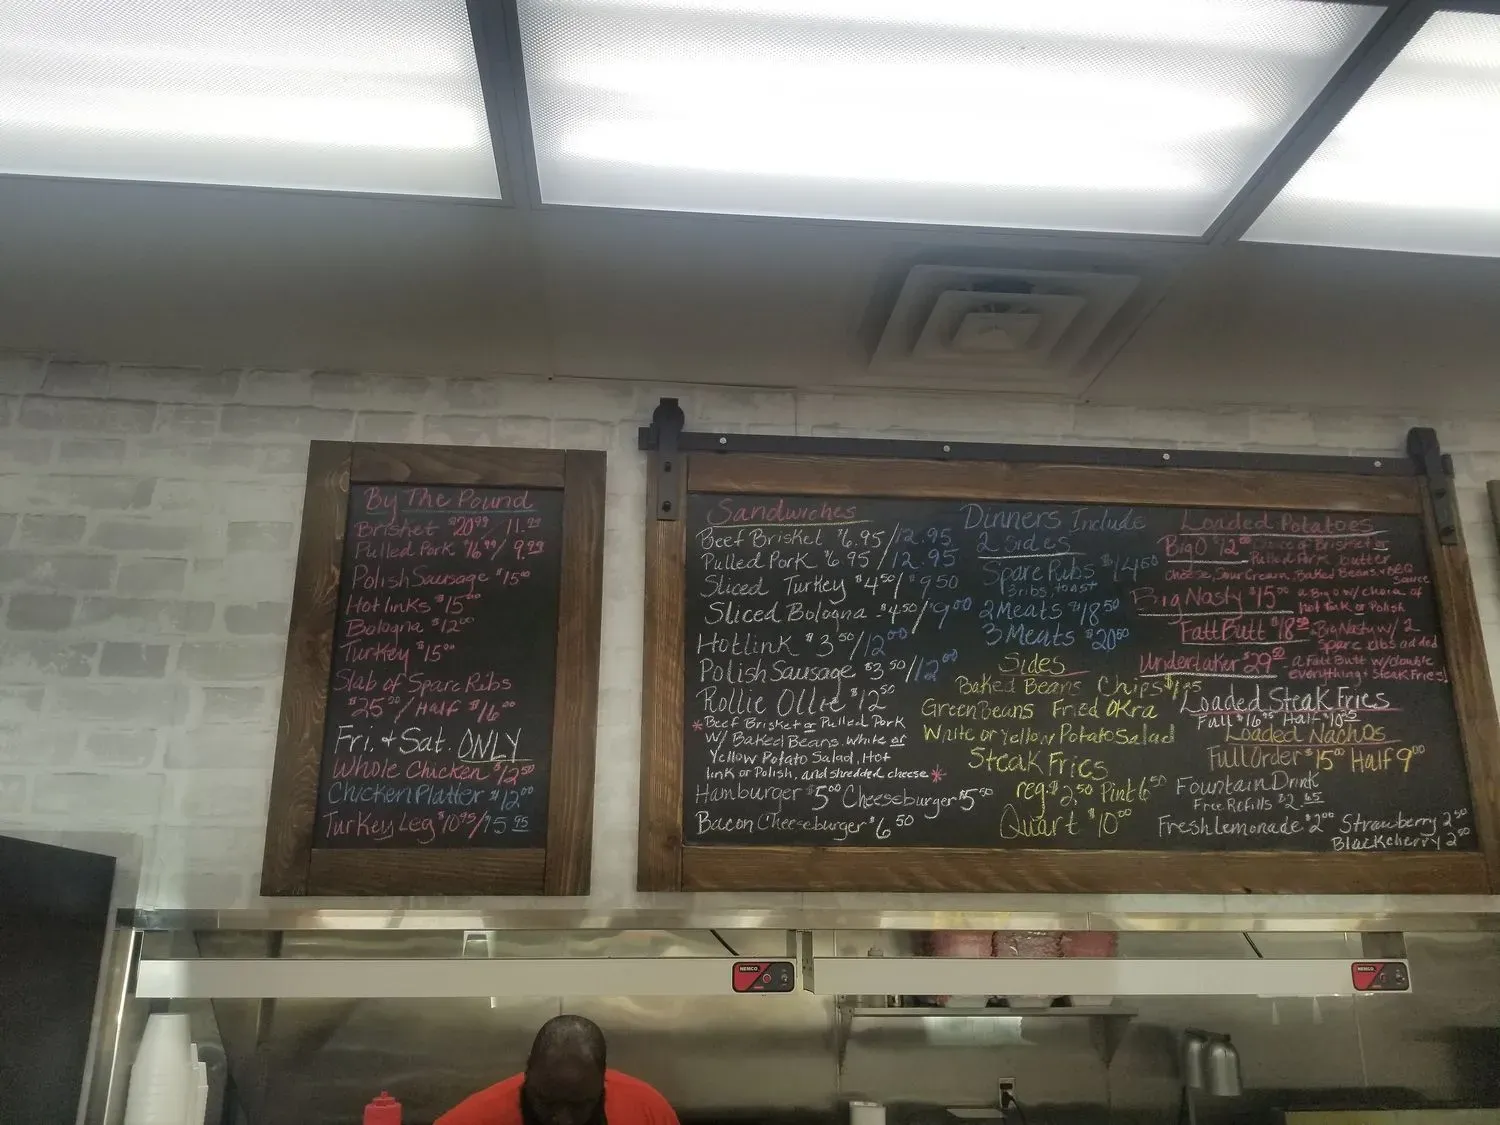 By The Pound
Brisket $20.99/11.99
Pulled Pork $16.99/9.99
Polish Sausage $15.00
Hotlinks $15.00
Bologna $12.00
Turkey $15.00
Slab of Spare Ribs
$25.00/Half $16.00
Fri. & Sat. ONLY
Whole Chicken $12.50
Chicken Platter $12.00
Turkey Leg $10.95/15.95
Sandwiches
Beef Brisket $6.95/12.95
Pulled Pork $6.95/12.95
Sliced Turkey $4.50/$9.50
Sliced Bologna $4.50/$9.00
Hotlink $3.50/12.00
Polish Sausage $3.50/12.00
Rollie Ollie $12.50
*Beef Brisket or Pulled Pork
w/ Baked Beans, White or
Yellow Potato Salad, Hot
link or Polish, and shredded cheese*
Hamburger $5.00 Cheeseburger $5.50
Bacon Cheeseburger $6.50
Dinners Include
2 Sides
Spare Ribs $14.50
3 ribs, toast
2 Meats $18.50
3 Meats $20.50
Sides
Baked Beans Chips $1.25
Green Beans Fried Okra
White or Yellow Potato Salad
Steak Fries
reg. $2.50 Pint 6.50
Quart $10.00
Loaded Potatoes
Big O $12.00
Pulled Pork butter
Cheese, Sour Cream, Baked Beans, & BBQ
Sauce
Big Nasty $15.00 a Big O w/ choice of
hot link or Polish
Fatt Butt $18.50 Big Nasty w/ 2
Spare ribs added
Undertaker $29.50 a Fatt Butt w/ double
everything + Steak Fries!
Loaded Steak Fries
Full Half
Loaded Nachos
Full Order $15.00 Half 9.00
Fountain Drink
Free Refills $2.65
Fresh Lemonade $2.00 Strawberry 2.50
Blackcherry 2.50
NEMCO
NEMCO